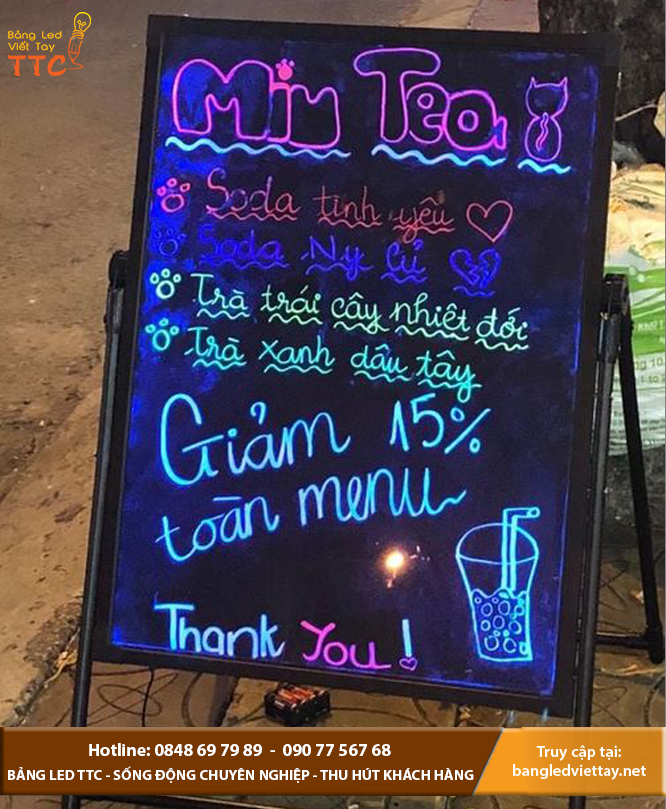 Bảng Led
Viết Tay
TTC
Miu Tea
Soda tình yêu
Soda Ny Cũ
Trà trái cây nhiệt đới
Trà xanh dâu tây
Giảm 15%
toàn menu
Thank You!
Hotline: 0848 69 79 89 - 090 77 567 68
BẢNG LED TTC - SỐNG ĐỘNG CHUYÊN NGHIỆP - THU HÚT KHÁCH HÀNG
Truy cập tại:
bangledviettay.net